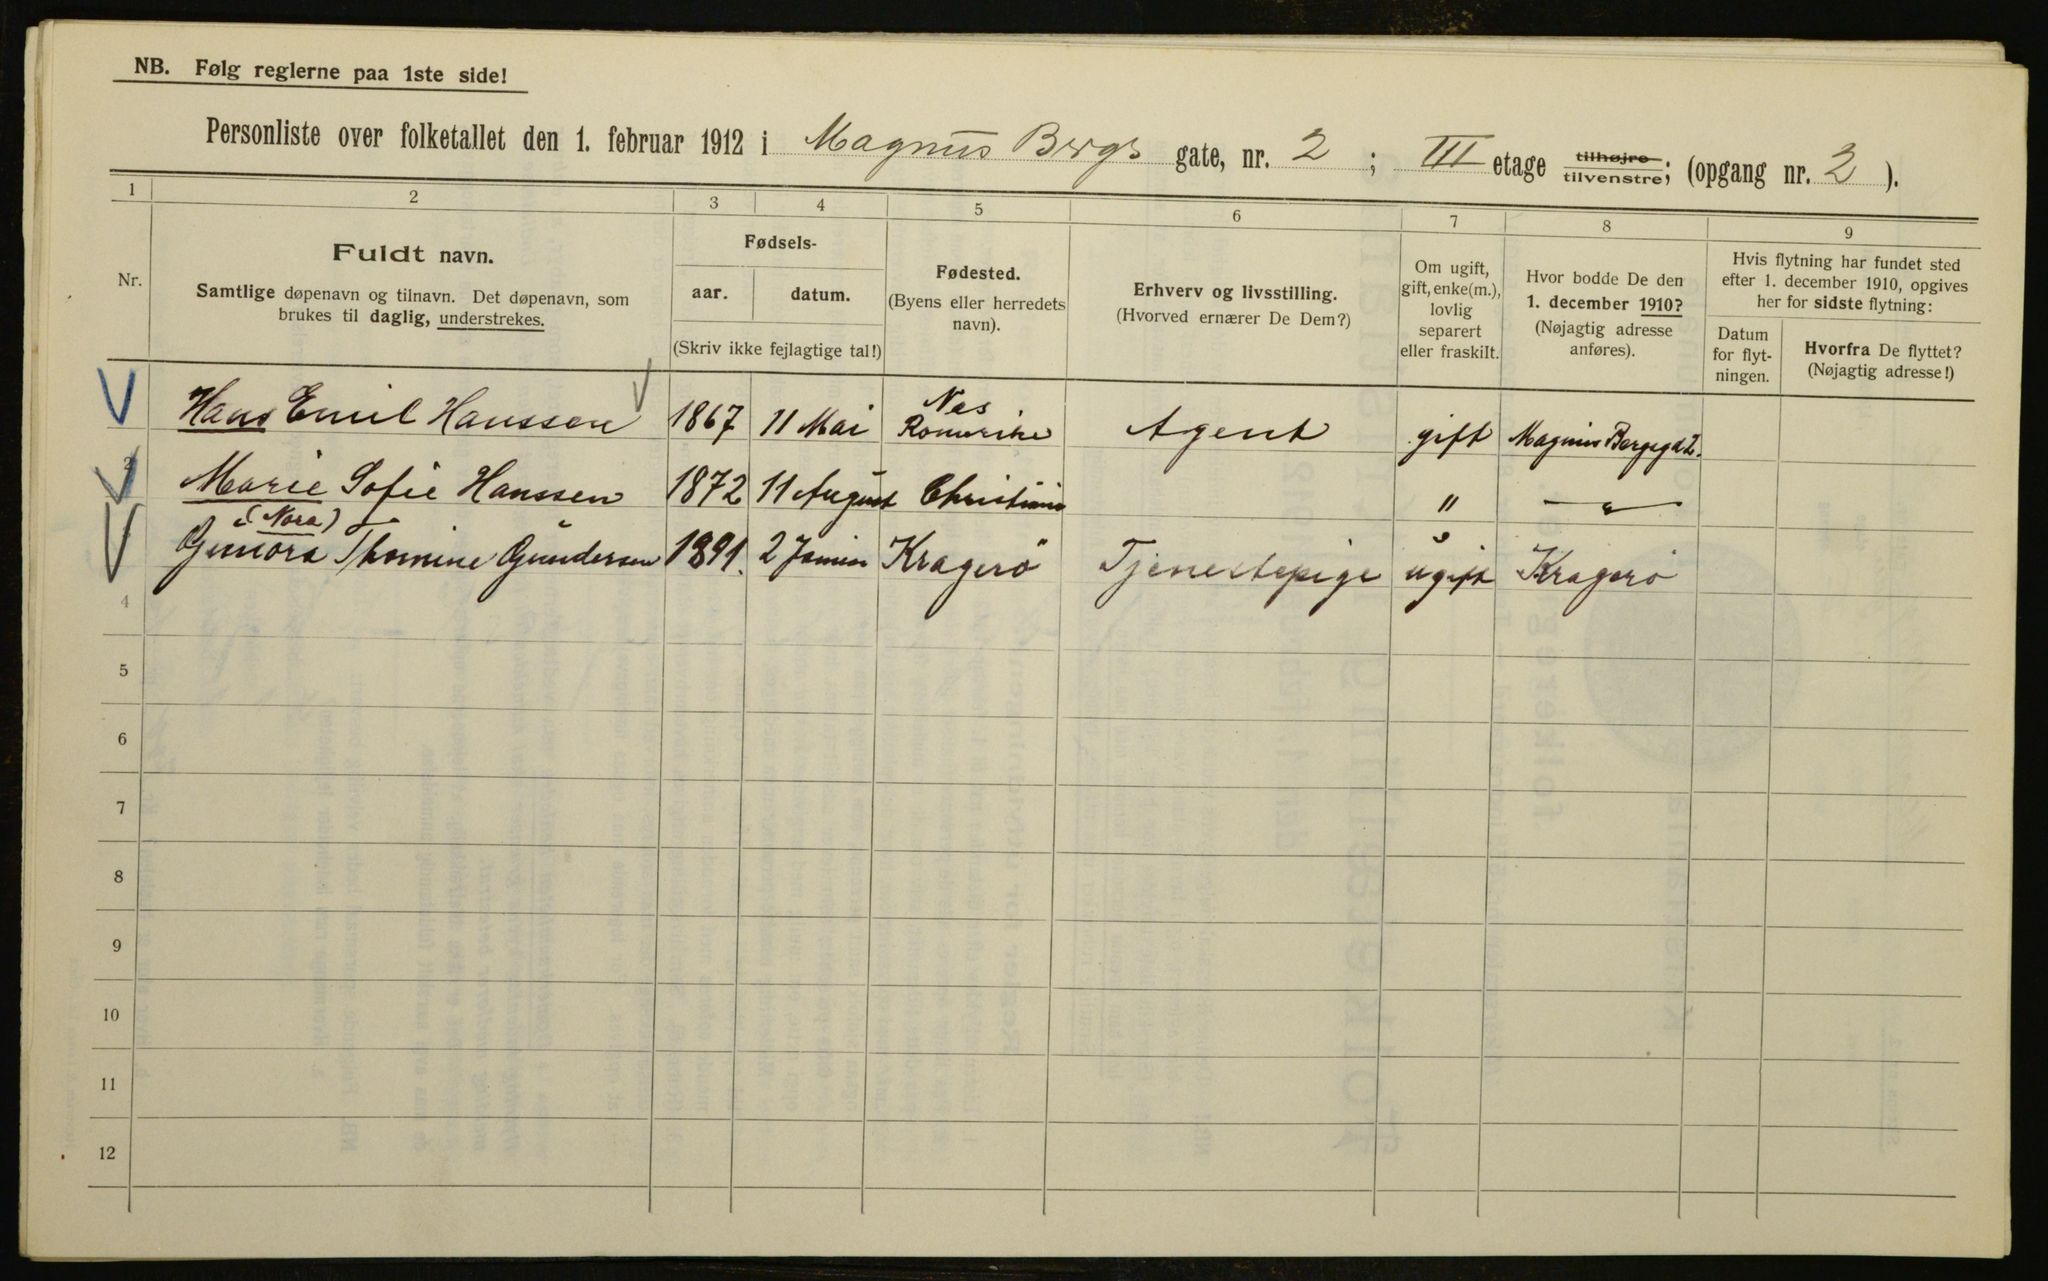 NB. Følg reglerne paa 1ste side!
Personliste over folketallet den 1. februar 1912 i Magnus Bergs gate, nr. 2 ; III etage tilhøjre tilvenstre; (opgang nr. 2 ).
1 2 3 4 5 6 7 8 9
Nr.
Fuldt navn.
Samtlige døpenavn og tilnavn. Det døpenavn, som
brukes til daglig, understrekes.
Fødsels-
aar. datum.
(Skriv ikke fejlagtige tal!)
Fødested.
(Byens eller herredets
navn).
Erhverv og livsstilling.
(Hvorved ernærer De Dem?)
Om ugift,
gift, enke(m.),
lovlig
separert
eller fraskilt.
Hvor bodde De den
1. december 1910?
(Nøjagtig adresse
anføres).
Hvis flytning har fundet sted
efter 1. december 1910, opgives
her for sidste flytning:
Datum
for flyt-
ningen.
Hvorfra De flyttet?
(Nøjagtig adresse!)
Hans Emil Hanssen 1867 11 Mai Nes Romerike Agent gift Magnus Bergsgd 2.
2 Marie Sofie Hanssen 1872 11 August Christiania " — " —
(Nora)
Gunora Thomine Gundersen 1891. 2 Kragerö Tjenestepige ugift Kragerö
4
5
6
7
8
9
10
11
12